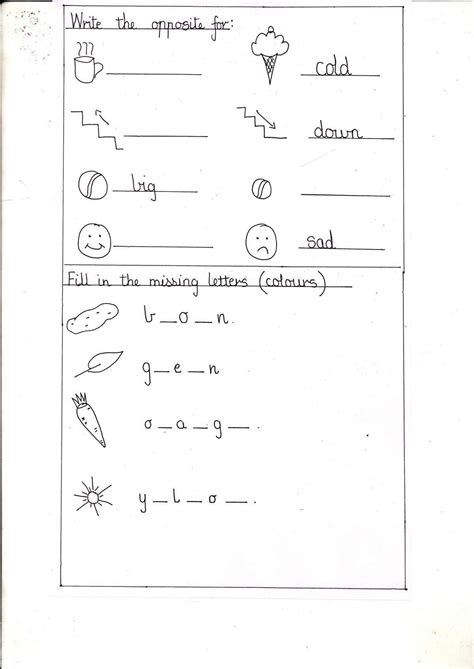 Write the opposite for:
cold
down
big
sad
Fill in the missing letters (colours)
b_o_n.
g_e_n
o_a_g_.
y_l_o_.